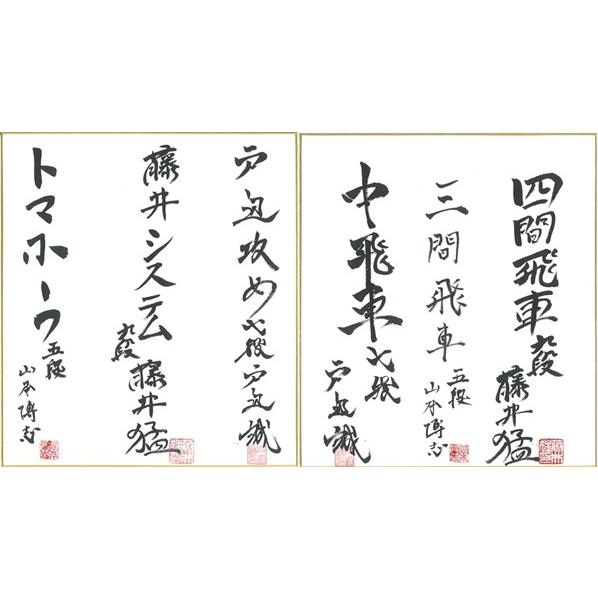 戸辺攻め 七段 戸辺誠
藤井システム 九段 藤井猛
トマホーク 五段 山本博志
四間飛車 九段 藤井猛
三間飛車 五段 山本博志
中飛車 七段 戸辺誠